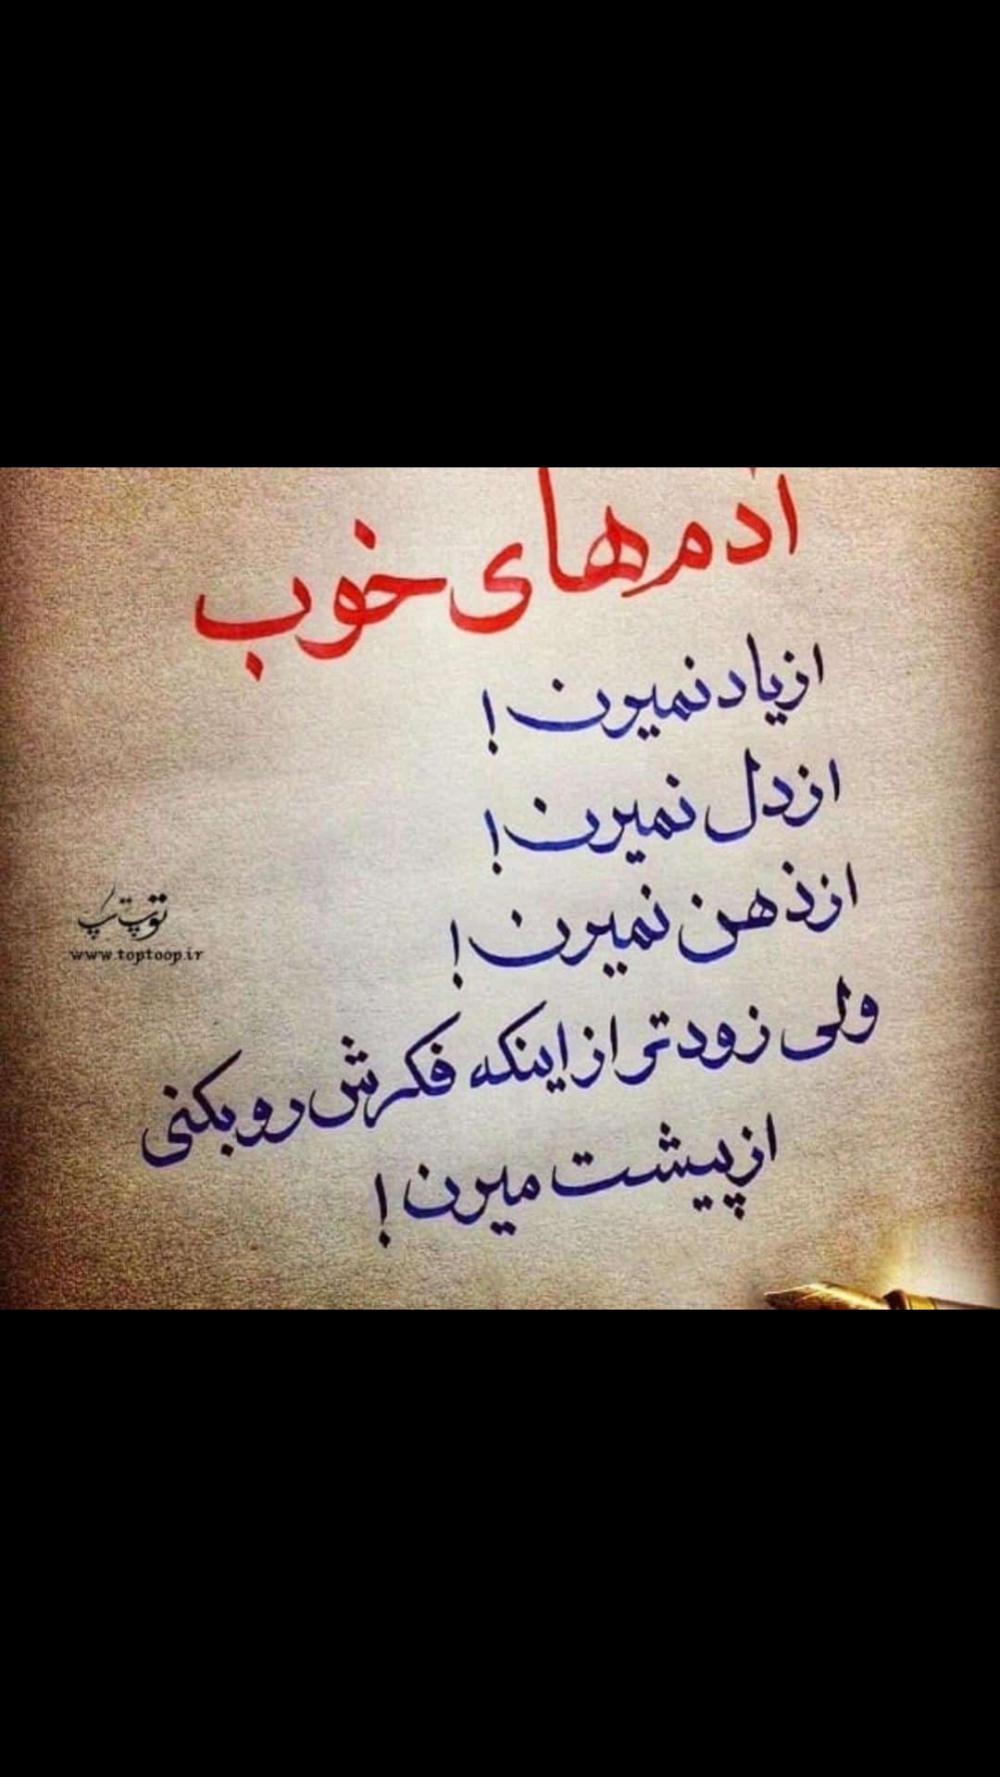 آدم‌های خوب
از یاد نمیرون !
از دل نمیرن !
از ذهن نمیرن !
ولی زودتر از اینکه فکرش رو بکنی
از پیشت میرن !
توپ تاپ
www.toptoop.ir